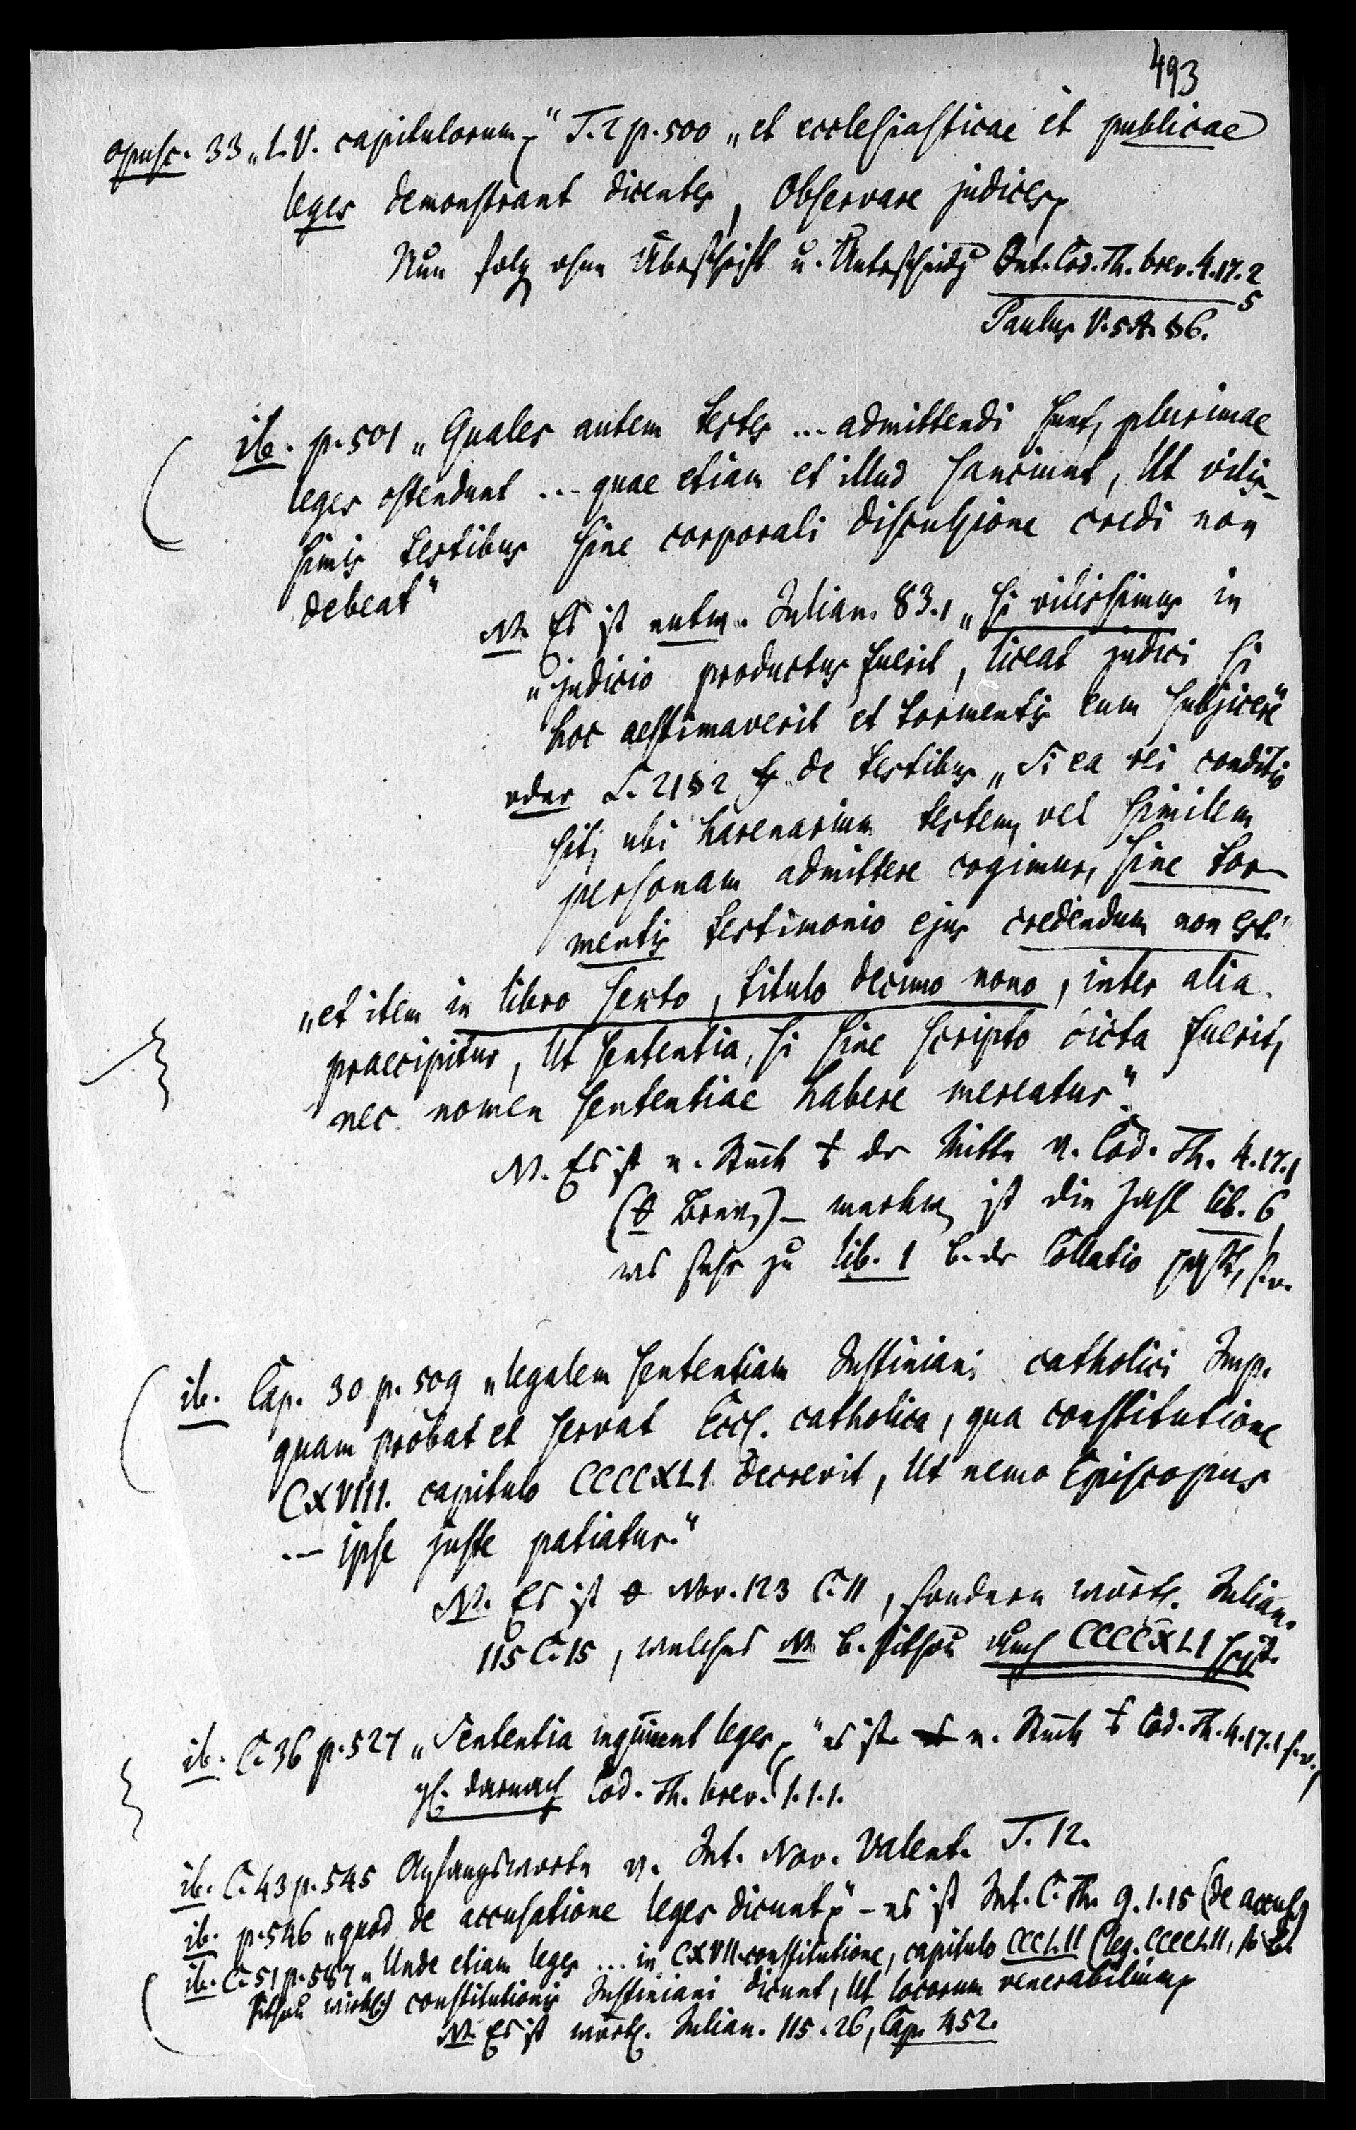 493
opusc. 33 „L.V. capitulorum" T. 2 p. 500 „et ecclesiasticae et publicae
leges demonstrant dicentes, Observare judices
Nun folg ohne Überschrift u. Unterscheidg Int. Cod. Th. brev. 4.17.2
5
Paulus V. 5A. §6.
ib. p. 501 „Quales autem testes ... admittendi sunt, plurimae
leges ostendunt ... quae etiam et illud sanciunt, Ut vilis-
simis testibus sine corporali discussione credi non
debeat"
NB. Es ist entw. Julian. 83.1 „si vilissimus in
„judicio productus fuerit, liceat judici si
hoc aestimaverit et tormentis eum subjicere"
oder L. 21 § 2 de testibus „Si ea rei conditio
sit, ubi harenarium testem, vel similem
personam admittere cogimur, sine tor-
mentis testimonio ejus credendum non est."
„et item in libro sexto, titulo decimo nono, inter alia
praecipitur, Ut sententia, si sine scripto dicta fuerit,
nec nomen sententiae habere mereatur".
NB. Es ist e. Stück der Mitte v. Cod. Th. 4.17.1
(Brev.) – merkw. ist die Zahl lib. 6,
wo sehr zu lib. 1 b. der Collatio s.v.
ib. Cap. 30 p. 509 „legalem sententiam Justiniani catholici Imp.
quam probat et servat Eccl. catholica, qua constitutione
CXVIII. capitulo CCCCXLI decrevit, Ut nemo Episcopus
... ipse juste patiatur."
NB. Es ist Nov. 123 C. 11, sondern wörtl. Julian.
115 C. 15, welches NB. b. Pithou auch CCCCXLI heißt.
ib. C. 36 p. 527 „Sententia inquiunt leges" es ist e. Stück Cod. Th. 4.17.1 s.v.,
gl. darnach Cod. Th. brev. 1.1.1.
ib. C. 43 p. 545 Anfangsworte v. Int. Nov. Valent. T. 12.
ib. p. 546 „quod de accusatione leges dicunt" – es ist Int. C. Th. 9.1.15 (de accus.)
ib. C. 51 p. 587 „Unde etiam leges ... in CXVII constitutione, capitulo CCCLII (leg. CCCCLII,
Pithou wirkl.) constitutionis Justiniani dicunt, Ut locorum venerabilium
NB. Es ist wörtl. Julian. 115.26, Cap. 452.